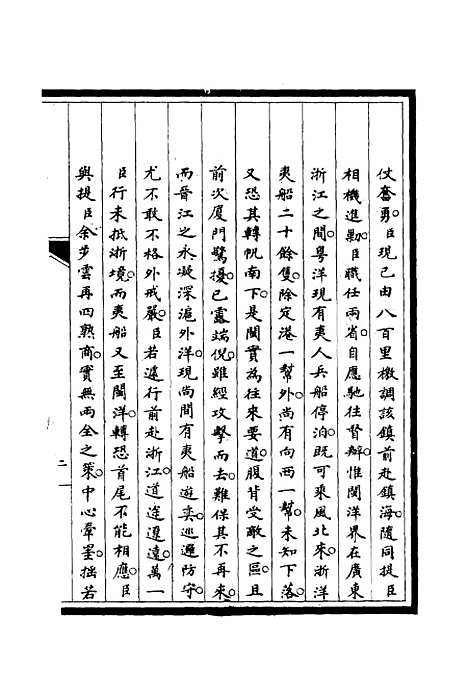 仗奮勇。臣現已由八百里檄調該鎮前赴鎮海。隨同提臣
相機進勦。臣職任兩省。自應馳往督辦。惟閩洋界在廣東
浙江之間。粵洋現有夷人兵船停泊。既可乘風北來。浙洋
夷船二十餘隻。除定港一幫外。尚有向西一幫。未知下落。
又恐其轉帆南下。是閩實為往來要道。腹背受敵之區。且
前次廈門驚擾。已露端倪。雖經攻擊而去。難保其不再來。
而晉江之永凝深滬外洋。現尚間有夷船遊奕。巡邏防守。
尤不敢不格外戒嚴。臣若遽行前赴浙江。道途遝遠。萬一
臣行未抵浙境。而夷船又至閩洋。轉恐首尾不能相應。臣
與提臣余步雲再四熟商。實無兩全之策。中心牽罣。拙若
二